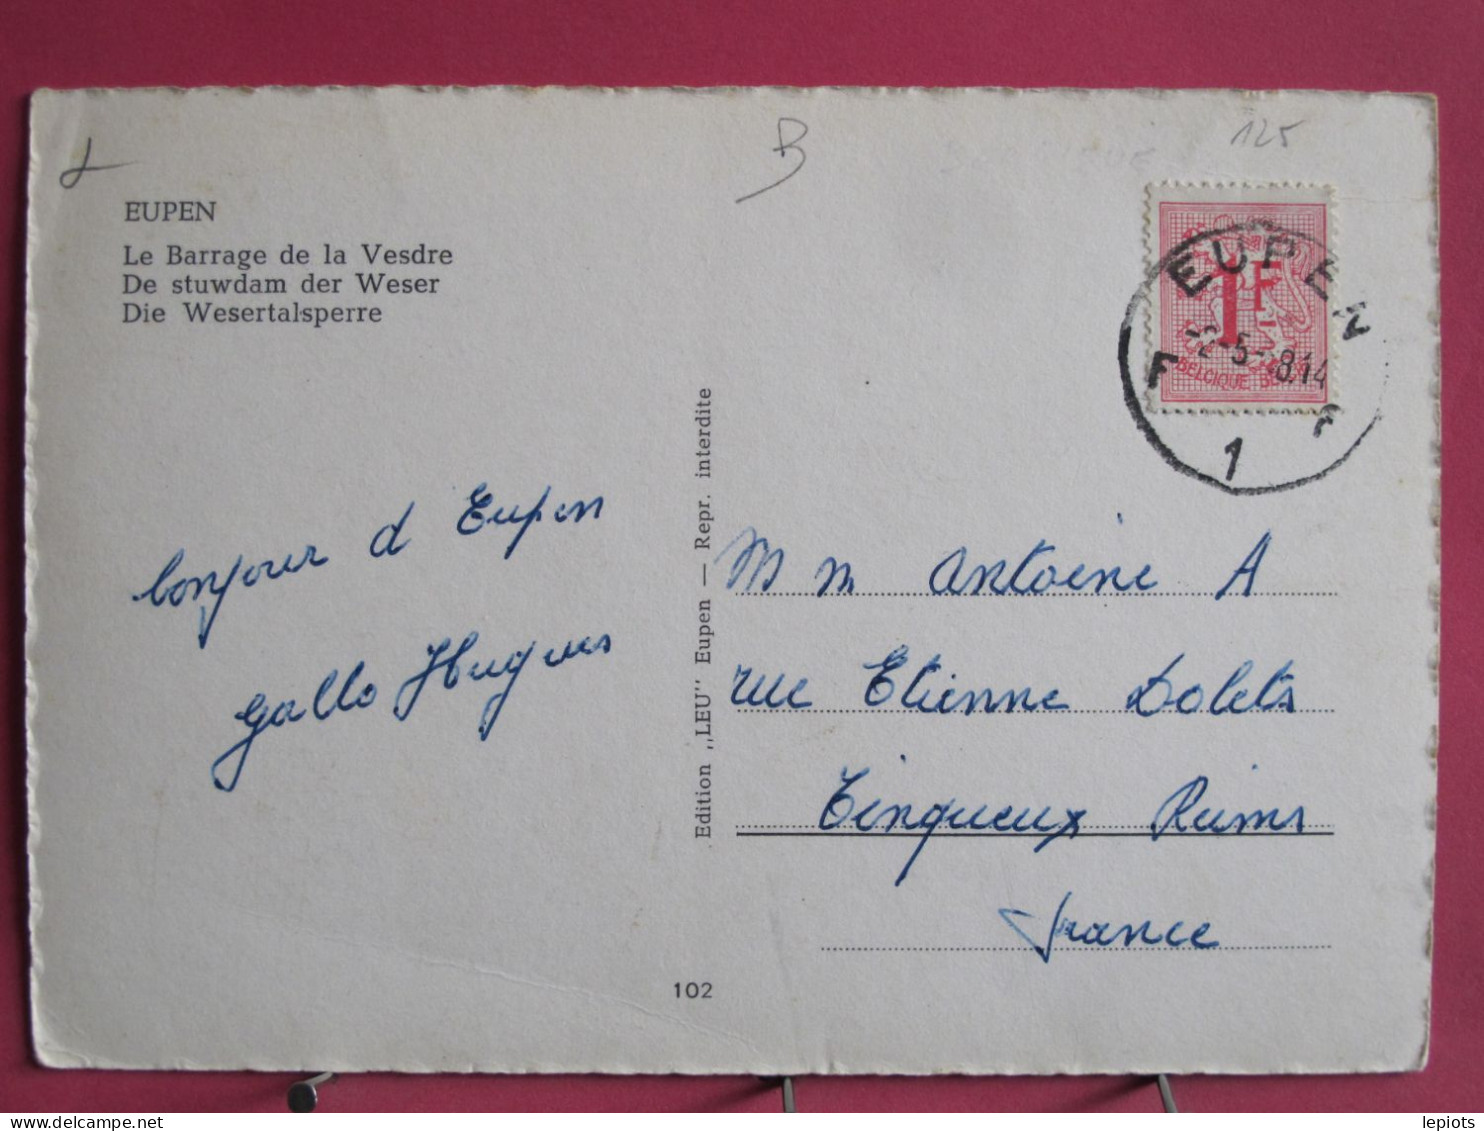 B
125
EUPEN
Le Barrage de la Vesdre
De stuwdam der Weser
Die Wesertalsperre
1F
BELGIQUE
EUPEN
-2-5-
814
F
F
1
bonjour d Eupen
Gallo Hugues
Edition „LEU" Eupen — Repr. interdite
M m Antoine A
rue Etienne Dolets
Tinqueux Reims
france
102
lepiots